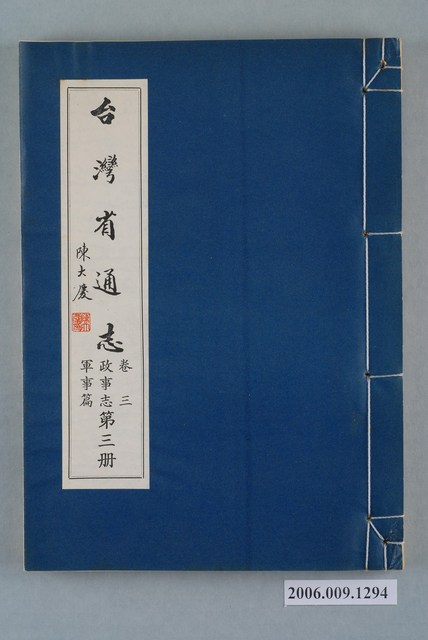 台灣省通志
卷三
政事志
軍事篇
第三册
陳大慶
2006.009.1294